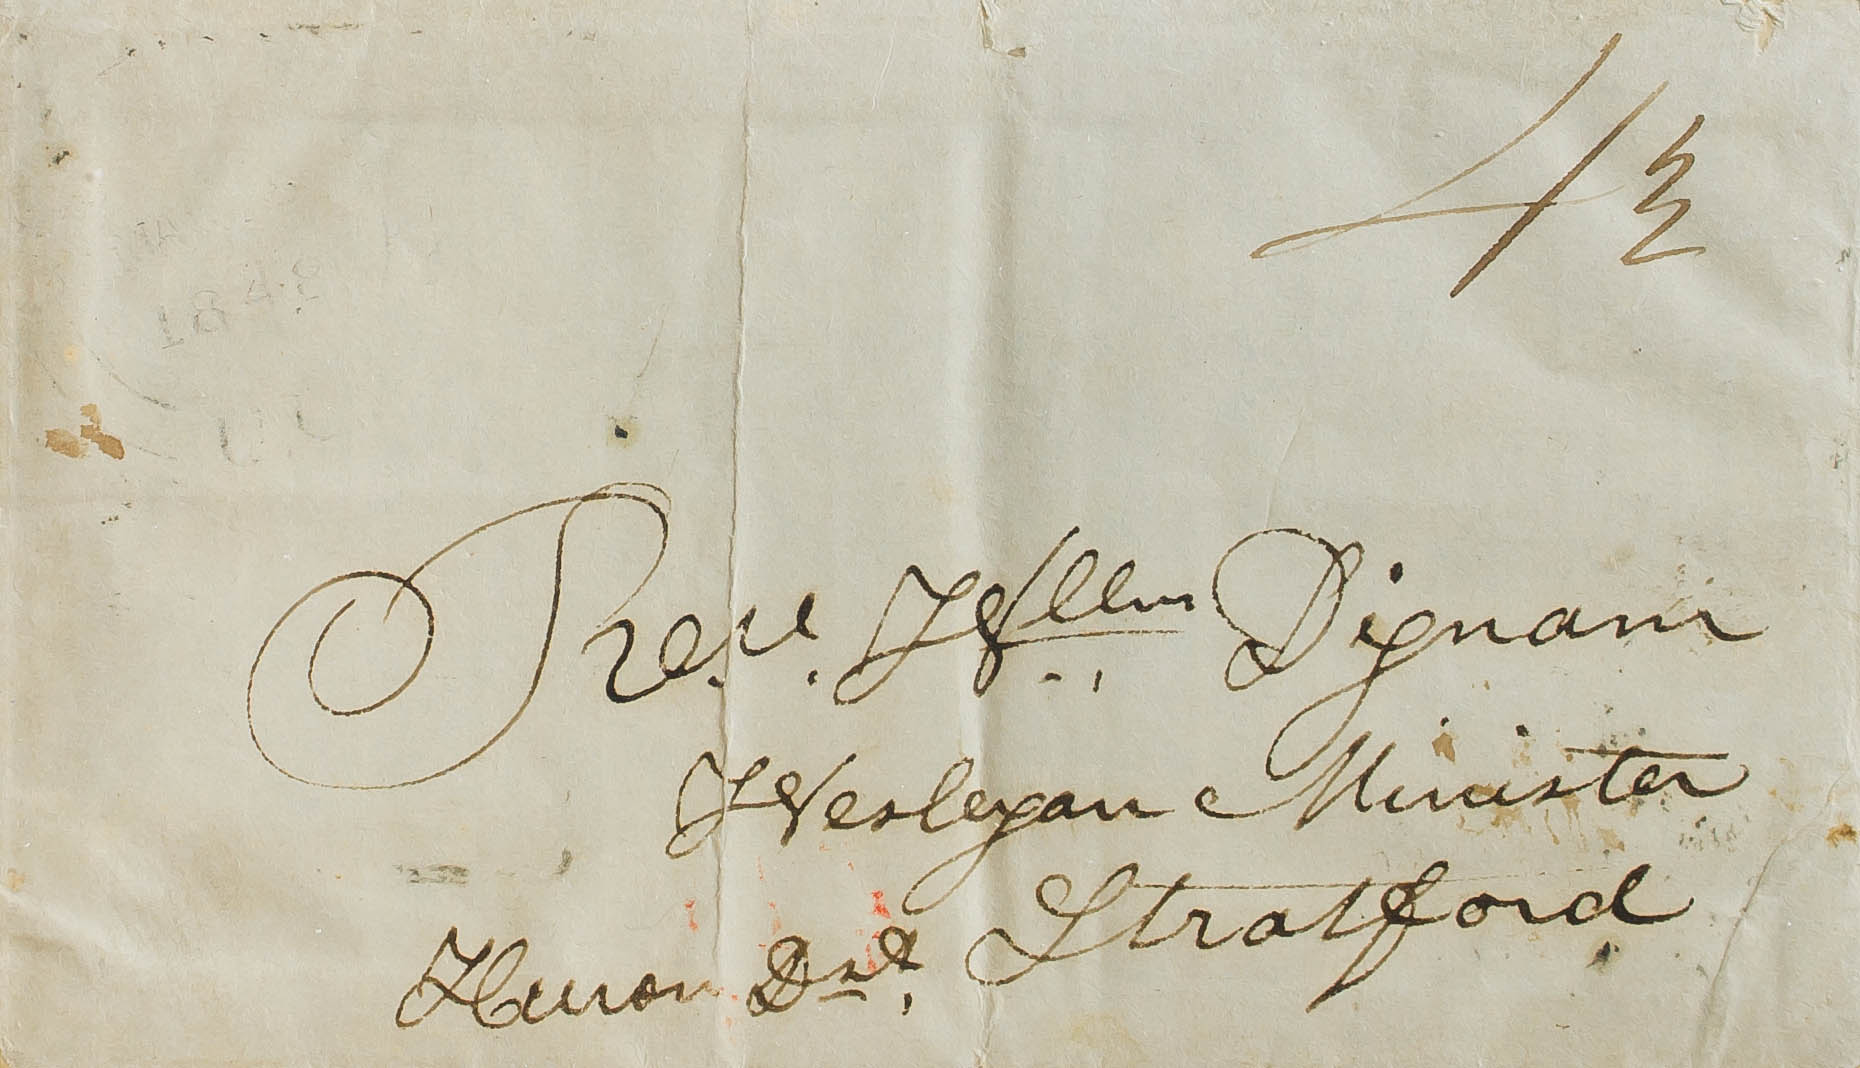 4½
1842
Revd. Wllm Dignam
Wesleyan Minister
Stratford
Huron Dst,